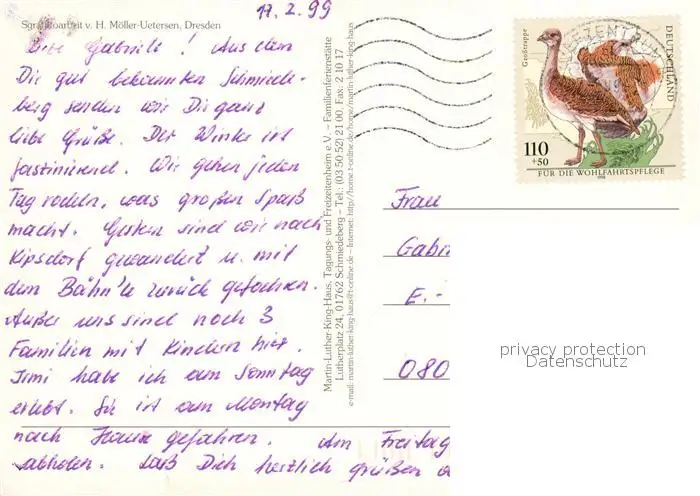 Sgraffitoarbeit v. H. Möller-Uetersen, Dresden
17.2.99
Liebe Gabriele! Aus dem
Dir gut bekannten Schmiede-
berg senden wir Dir ganz
liebe Grüße. Der Winter ist
faszinierend. Wir gehen jeden
Tag rodeln, was großen Spaß
macht. Gestern sind wir nach
Kipsdorf gewandert u. mit
dem Bähn'le zurück gefahren.
Außer uns sind noch 3
Familien mit Kindern hier.
Irmi habe ich am Sonntag
erlebt. Sie ist am Montag
nach Hause gefahren. Am Freitag
abholen. Laß Dich herzlich grüßen
Martin-Luther-King-Haus, Tagungs- und Freizeitenheim e.V. – Familienferienstätte
Lutherplatz 24, 01762 Schmiedeberg – Tel.: (03 50 52) 21 00, Fax: 2 10 17
e-mail: martin-luther-king-haus@t-online.de – Internet: http://home.t-online.de/home/martin-luther-king-haus
Großtrappe
DEUTSCHLAND
110
+50
FÜR DIE WOHLFAHRTSPFLEGE
Frau
Gabri
E.-
080
privacy protection
Datenschutz